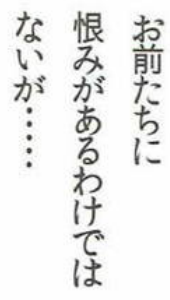 お前たちに
恨みがあるわけでは
ないが……